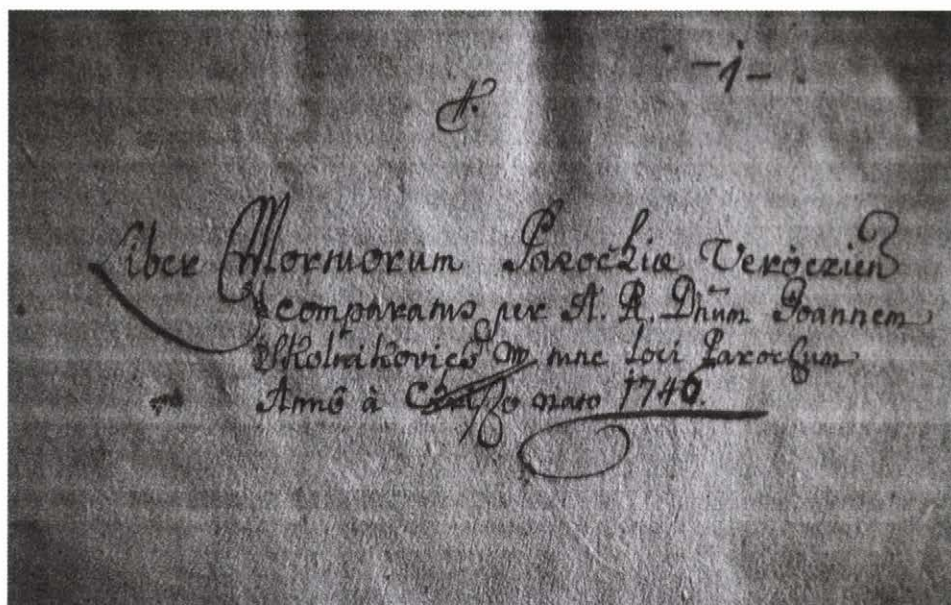 -1-
A.
Liber Mortuorum Parochiæ Veröczien
comparatus per A. R. Dnūm Joannem
Skolnikovics nunc loci Parochum
Anno à Christo nato 1746.